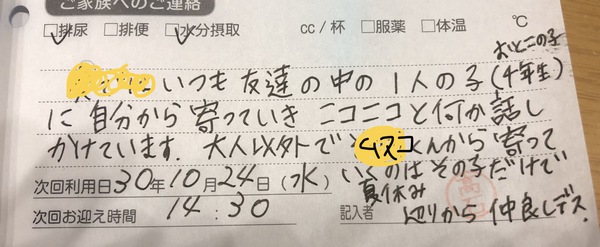 ご家族へのご連絡
☑排尿 □排便 ☑水分摂取 cc/杯 □服薬 □体温 ℃
おとこの子
いつも友達の中の1人の子(4年生)
に自分から寄っていき ニコニコと何か話し
かけています. 大人以外で くんから寄って
いくのはその子だけで
次回利用日30年10月24日(水)
夏休み
辺りから仲良しデス.
次回お迎え時間 14:30
記入者